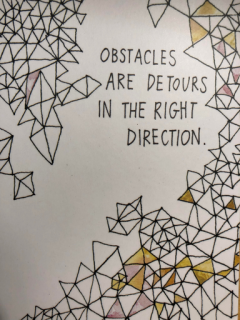 OBSTACLES
ARE DETOURS
IN THE RIGHT
DIRECTION.